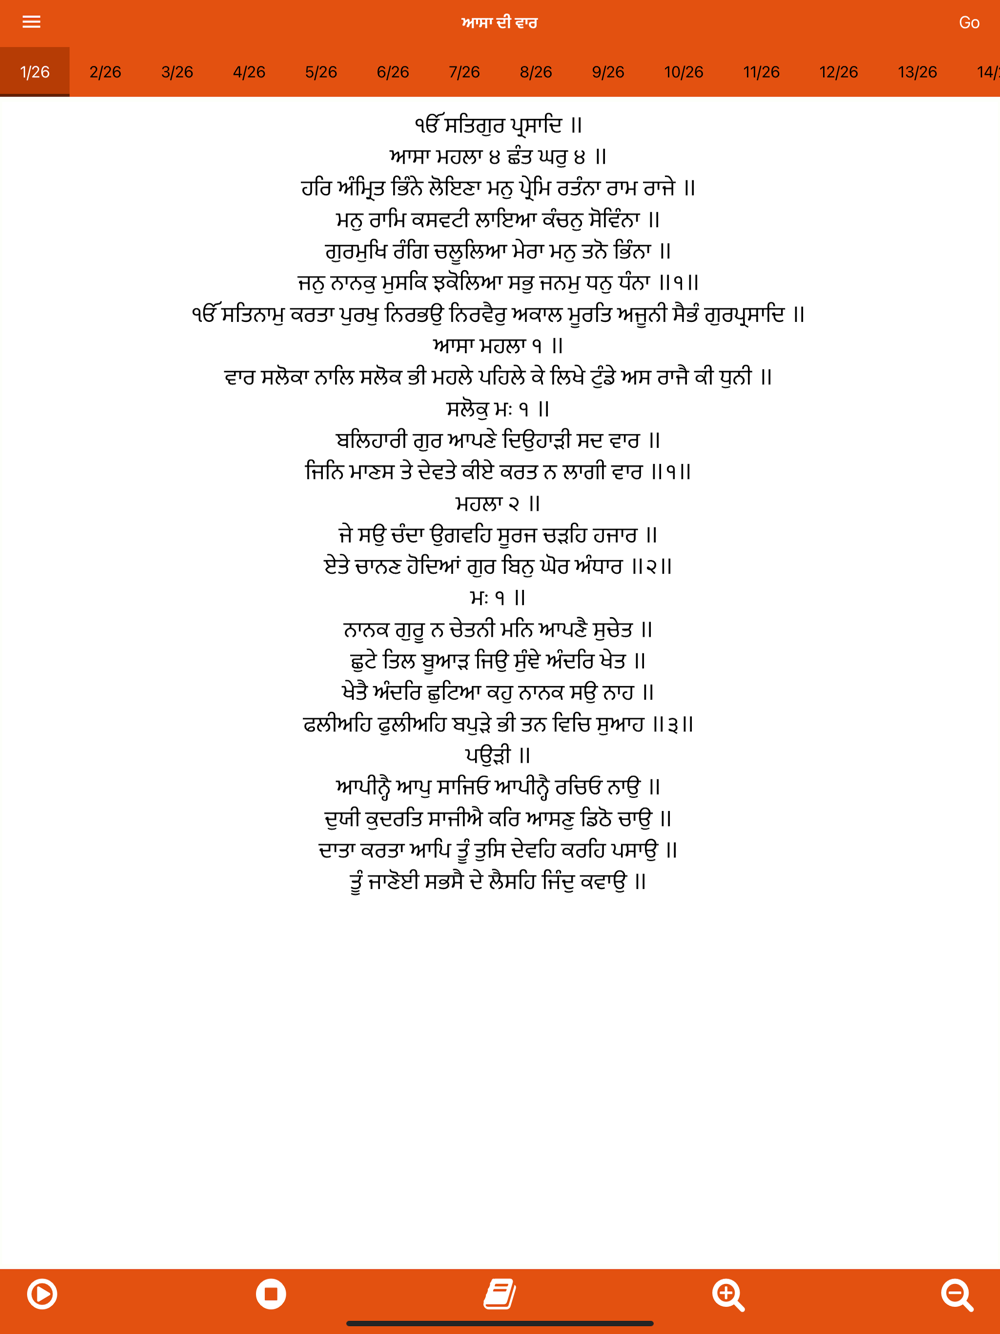 ਆਸਾ ਦੀ ਵਾਰ
Go
1/26 2/26 3/26 4/26 5/26 6/26 7/26 8/26 9/26 10/26 11/26 12/26 13/26 14/
ੴ ਸਤਿਗੁਰ ਪ੍ਰਸਾਦਿ ॥
ਆਸਾ ਮਹਲਾ ੪ ਛੰਤ ਘਰੁ ੪ ॥
ਹਰਿ ਅੰਮ੍ਰਿਤ ਭਿੰਨੇ ਲੋਇਣਾ ਮਨੁ ਪ੍ਰੇਮਿ ਰਤੰਨਾ ਰਾਮ ਰਾਜੇ ॥
ਮਨੁ ਰਾਮਿ ਕਸਵਟੀ ਲਾਇਆ ਕੰਚਨੁ ਸੋਵਿੰਨਾ ॥
ਗੁਰਮੁਖਿ ਰੰਗਿ ਚਲੂਲਿਆ ਮੇਰਾ ਮਨੁ ਤਨੋ ਭਿੰਨਾ ॥
ਜਨੁ ਨਾਨਕੁ ਮੁਸਕਿ ਝਕੋਲਿਆ ਸਭੁ ਜਨਮੁ ਧਨੁ ਧੰਨਾ ॥੧॥
ੴ ਸਤਿਨਾਮੁ ਕਰਤਾ ਪੁਰਖੁ ਨਿਰਭਉ ਨਿਰਵੈਰੁ ਅਕਾਲ ਮੂਰਤਿ ਅਜੂਨੀ ਸੈਭੰ ਗੁਰਪ੍ਰਸਾਦਿ ॥
ਆਸਾ ਮਹਲਾ ੧ ॥
ਵਾਰ ਸਲੋਕਾ ਨਾਲਿ ਸਲੋਕ ਭੀ ਮਹਲੇ ਪਹਿਲੇ ਕੇ ਲਿਖੇ ਟੁੰਡੇ ਅਸ ਰਾਜੈ ਕੀ ਧੁਨੀ ॥
ਸਲੋਕੁ ਮਃ ੧ ॥
ਬਲਿਹਾਰੀ ਗੁਰ ਆਪਣੇ ਦਿਉਹਾੜੀ ਸਦ ਵਾਰ ॥
ਜਿਨਿ ਮਾਣਸ ਤੇ ਦੇਵਤੇ ਕੀਏ ਕਰਤ ਨ ਲਾਗੀ ਵਾਰ ॥੧॥
ਮਹਲਾ ੨ ॥
ਜੇ ਸਉ ਚੰਦਾ ਉਗਵਹਿ ਸੂਰਜ ਚੜਹਿ ਹਜਾਰ ॥
ਏਤੇ ਚਾਨਣ ਹੋਦਿਆਂ ਗੁਰ ਬਿਨੁ ਘੋਰ ਅੰਧਾਰ ॥੨॥
ਮਃ ੧ ॥
ਨਾਨਕ ਗੁਰੂ ਨ ਚੇਤਨੀ ਮਨਿ ਆਪਣੈ ਸੁਚੇਤ ॥
ਛੁਟੇ ਤਿਲ ਬੂਆੜ ਜਿਉ ਸੁੰਞੇ ਅੰਦਰਿ ਖੇਤ ॥
ਖੇਤੈ ਅੰਦਰਿ ਛੁਟਿਆ ਕਹੁ ਨਾਨਕ ਸਉ ਨਾਹ ॥
ਫਲੀਅਹਿ ਫੁਲੀਅਹਿ ਬਪੁੜੇ ਭੀ ਤਨ ਵਿਚਿ ਸੁਆਹ ॥੩॥
ਪਉੜੀ ॥
ਆਪੀਨ੍ਹੈ ਆਪੁ ਸਾਜਿਓ ਆਪੀਨ੍ਹੈ ਰਚਿਓ ਨਾਉ ॥
ਦੁਯੀ ਕੁਦਰਤਿ ਸਾਜੀਐ ਕਰਿ ਆਸਣੁ ਡਿਠੋ ਚਾਉ ॥
ਦਾਤਾ ਕਰਤਾ ਆਪਿ ਤੂੰ ਤੁਸਿ ਦੇਵਹਿ ਕਰਹਿ ਪਸਾਉ ॥
ਤੂੰ ਜਾਣੋਈ ਸਭਸੈ ਦੇ ਲੈਸਹਿ ਜਿੰਦੁ ਕਵਾਉ ॥